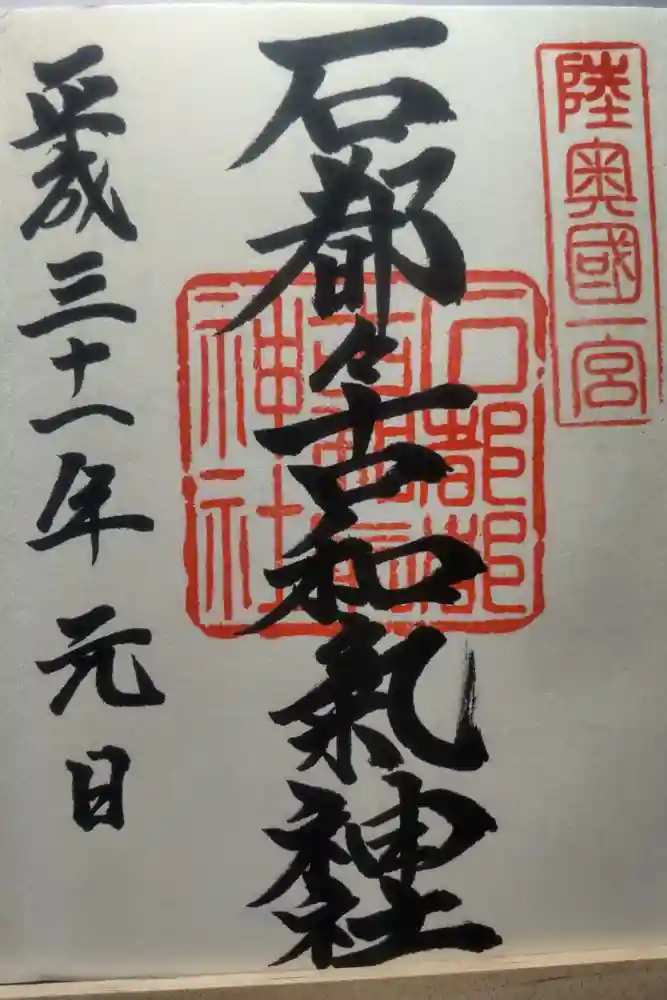 陸奥國一宮
石都々古和氣神社
石都都
古和氣
神社
平成三十一年元日